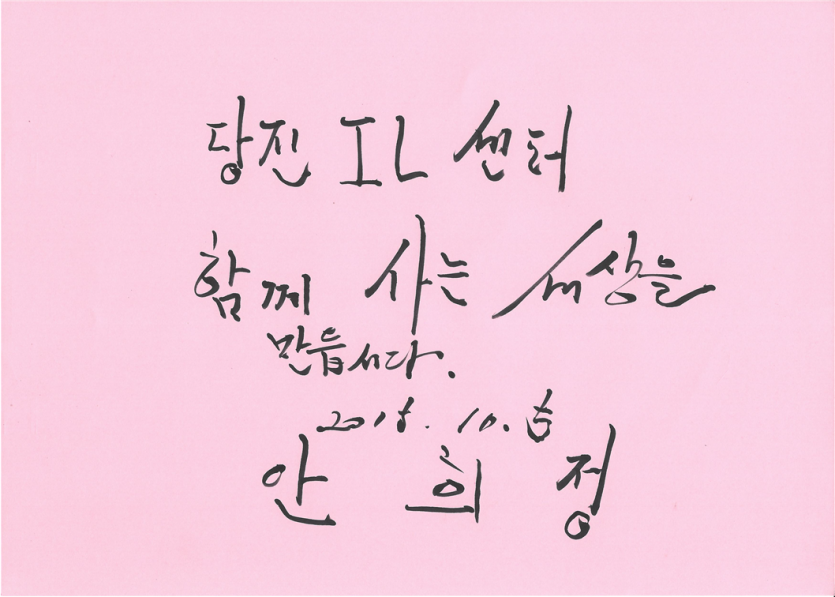 당진 IL 센터
함께 사는 세상을
만듭시다.
2015. 10. 5
안희정